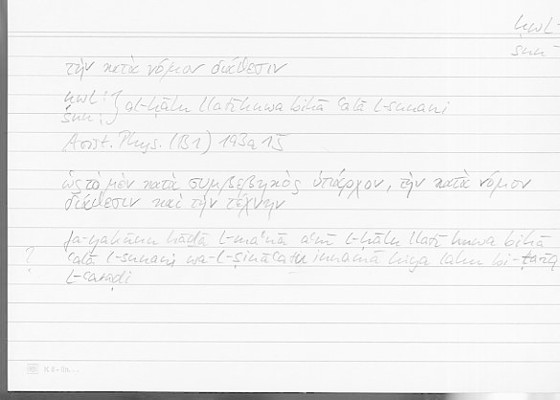 ḥwl-
snn-
τὴν κατὰ νόμον διάθεσιν
ḥwl:
snn: } al-ḥālu llatī huwa bihā ʿalā l-sunani
Arist. Phys. (B1) 193a 15
ὡς τὸ μὲν κατὰ συμβεβηκὸς ὑπάρχον, τὴν κατὰ νόμον
διάθεσιν καὶ τὴν τέχνην
fa-yakūnu hāḏā l-maʿnā aʿnī l-ḥālu llatī huwa bihā
? ʿalā l-sunani wa-l-ṣināʿatu innamā hiya lahu bi-ṭarīq
l-ʿaraḍi